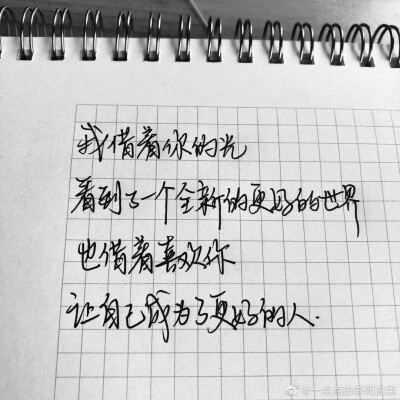 我借着你的光
看到了一个全新的更好的世界
也借着喜欢你
让自己成为了更好的人.